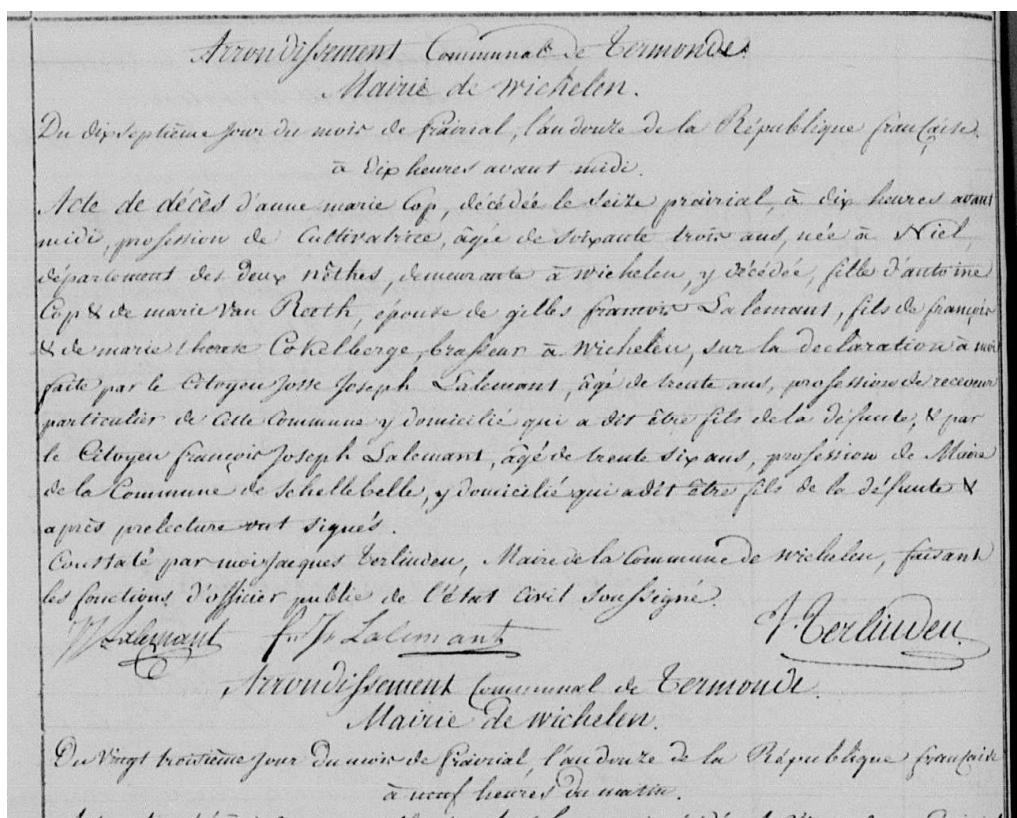 Arrondissement Communal de Termonde.
Mairie de Wichelen.
Du dix septième jour du mois de prairial, l'an douze de la République française.
à dix heures avant midi.
Acte de décès d'anne marie Cop, décédée le seize prairial, à dix heures avant
midi, profession de Cultivatrice, âgée de soixante trois ans, née à Niel,
département des deux nêthes, demeurante à wichelen, y décédée, fille d'antoine
Cop & de marie Van Reeth, épouse de gilles françois Lalemant, fils de françois
& de marie therese Cokelberge, brasseur à Wichelen, sur la declaration à moi
faite par le Citoyen Josse Joseph Lalemant, âgé de trente ans, profession de receveur
particulier de Cette Commune y domicilié qui a dit être fils de la défunte, & par
le Citoyen françois Joseph Lalemant, âgé de trente six ans, profession de Maire
de la Commune de Schellebelle, y domicilié qui a dit être fils de la défunte &
après prelecture ont signés.
Constaté par moi Jacques Terlinden, Maire de la Commune de wichelen, faisant
les fonctions d'officier public de l'état Civil soussigné.
JJ Lalemant fr. Js Lalemant J. Terlinden
Arrondissement Communal de Termonde.
Mairie de wichelen.
Du Vingt troisième jour du mois de prairial, l'an douze de la République française
à neuf heures du matin.